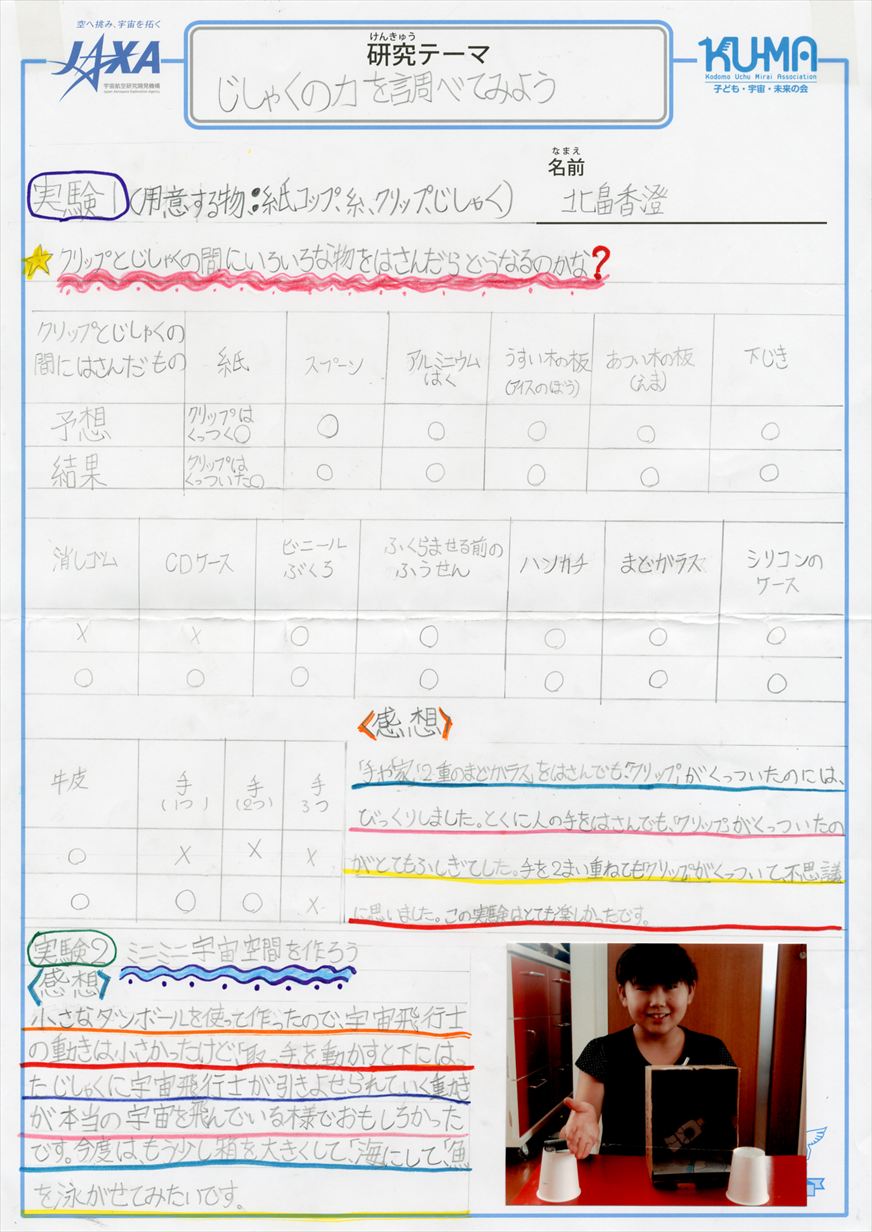 空へ挑み、宇宙を拓く
JAXA
宇宙航空研究開発機構
Japan Aerospace Exploration Agency
けんきゅう
研究テーマ
じしゃくの力を調べてみよう
KU-MA
Kodomo Uchu Mirai Association
子ども・宇宙・未来の会
なまえ
名前
北畠香澄
実験1(用意する物:紙コップ、糸、クリップ、じしゃく)
クリップとじしゃくの間にいろいろな物をはさんだらどうなるのかな?
クリップとじしゃくの間にはさんだもの 紙 スプーン アルミニウムはく うすい木の板(アイスのぼう) あつい木の板(えま) 下じき
予想 クリップはくっつく○ ○ ○ ○ ○ ○
結果 クリップはくっついた○ ○ ○ ○ ○ ○
消しゴム CDケース ビニールぶくろ ふくらませる前のふうせん ハンカチ まどガラス シリコンのケース
× × ○ ○ ○ ○ ○
○ ○ ○ ○ ○ ○ ○
牛皮 手(1つ) 手(2つ) 手3つ
○ × × ×
○ ○ ○ ×
《感想》
「手や家」「2重のまどガラス」をはさんでも「クリップ」がくっついたのには、
びっくりしました。とくに人の手をはさんでも、「クリップ」がくっついたの
がとてもふしぎでした。手を2まい重ねても「クリップ」がくっついて、不思議
に思いました。この実験はとても楽しかったです。
実験2 ミニミニ宇宙空間を作ろう
《感想》
小さなダンボールを使って作ったので、宇宙飛行士
の動きは、小さかったけど、「取っ手」を動かすと下には っ
たじしゃくに宇宙飛行士が引きよせられていく動き
が本当の宇宙を飛んでいる様でおもしろかった
です。今度は、もう少し箱を大きくして、「海」にして、「魚」
を泳がせてみたいです。